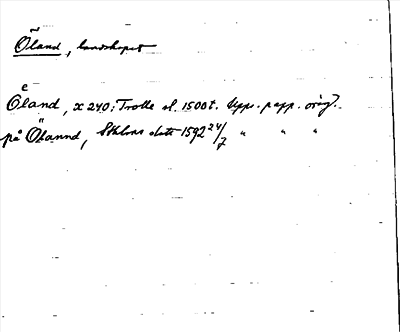 Öland, landskapet
Oͤland, x 240: Trolle sl. 1500t. Upps. papp. orig.
på Öelannd, Sthlms slott 1592 24/7 " " "